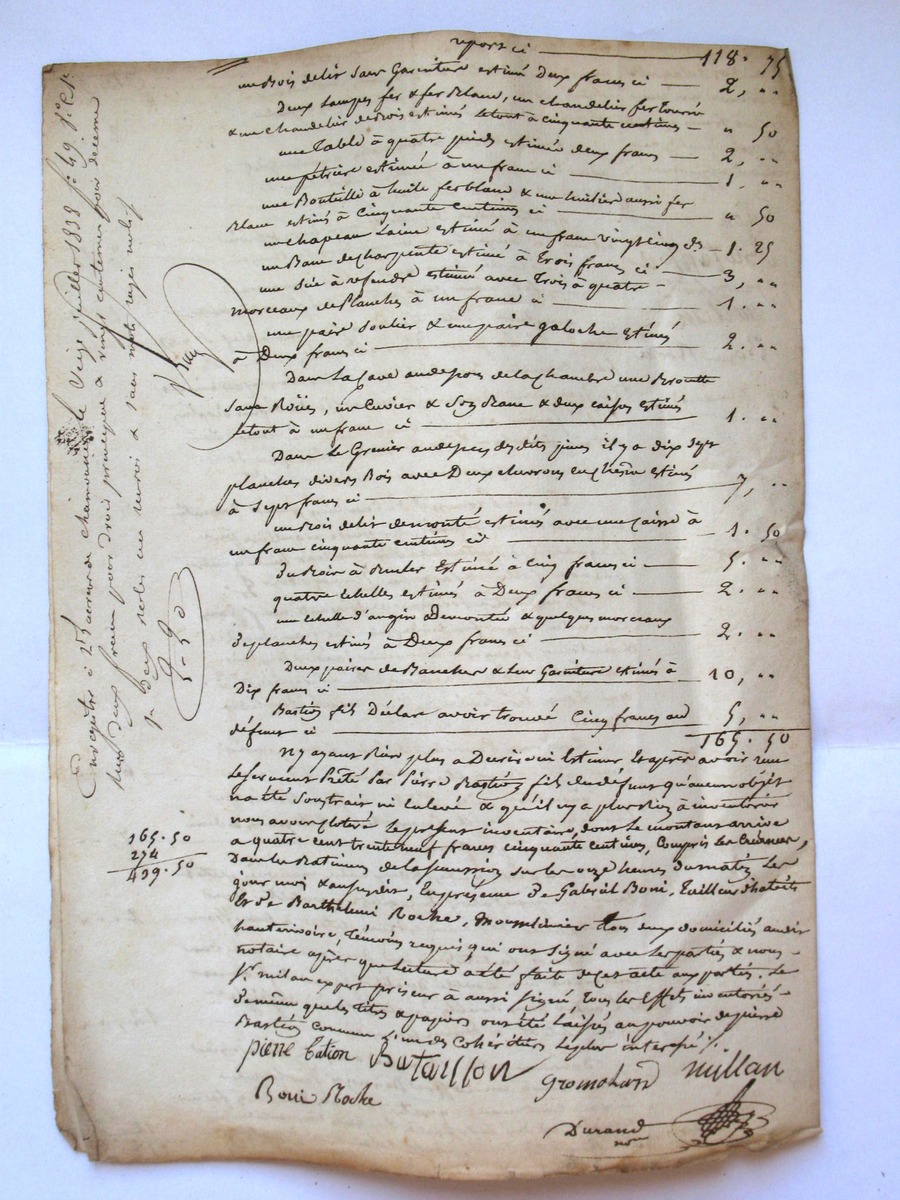 report ci 118. 75
un Bois delit Sans Garniture estimé Deux francs ci 2, "
Deux Lampes fer & fer Blanc, un chandelier fer Tourné
& un chandelier de Bois estimés letout à Cinquante centimes " 50
une Table à quatre pieds estimée deux francs 2, "
une pétrière estimée à un franc ci 1. "
une Bouteille à huile ferblanc & une huilier aussi fer
Blanc estimés à Cinquante Centimes ci " 50
un chapeau Laine estimé à un franc vingt cinq cs 1. 25
un Banc de charpente estimé à Trois francs ci 3, "
une Sie à refendre estimée avec Trois à quatre
morceaux de Planches à un franc ci 1. "
une paire Soulier & une paire galoche estimés
à Deux francs ci 2. "
Dans La Cave audessous de la chambre une Brouette
Sans Roües, un Cuvier & Son Banc & deux caisses estimés
letout à un franc ci 1. "
Dans Le Grenier audessus des dits il y a dix sept
planches divers Bois avec Deux chevrons en chesne estimés
à Sept francs ci 7, "
un Bois delit demonté estimés avec une Caisse à
un franc cinquante centimes ci 1. 50
Du Bois à Bruler Estimé à Cinq francs ci 5. "
quatre Echelles estimés à Deux francs ci 2. "
une Echelle d'angin Demontée & quelques morceaux
De planches estimés à Deux francs ci 2. "
Deux paires de Banches & leur Garniture estimés à
Dix francs ci 10, "
Bastion fils Déclare avoir trouvé Cinq francs au
défunt ci 5, "
165. 50
N'y ayant Rien plus a Decrire ni Estimer Et après avoir reçu
Le serment Prêté Par Pierre Bastion fils du défunt qu'aucun objet
na été Soustrait ni Enlevé & qu'il n'y a plus Rien à inventorier
nous avons Cloturé Le présent inventaire, dont Le montant arrive
a quatre cent trente neuf francs cinquante centimes, Compris Les Créances,
Dans Les Batiments de la Succession Sur Les onze heures du matin Les
jour moi & an susdits, En présence De Gabriel Boni, Tailleur d'habits
Et De Barthelemi Roche, tous deux domiciliés audit
hauterivoire, Témoins requis qui ont Signé avec Les parties & nous
notaire après que Lecture a été faite de cet acte aux parties. Le
Sr. milan expert priseur à aussi Signé, Tous les Effets inventoriés
De même que les titres & papiers ont été Laissés au pouvoir de pierre
Bastion comme L'un des Cohéritiers Le plus interessé
pierre Bation Bataillon gromolard millan
Boni Roche
Durand
nre
Enregistré à St Laurent de chamousset le Seize juillet 1838 fo 49
Reçu deux francs pour droit principal & vingt centimes pour decime
165. 50
274
439. 50